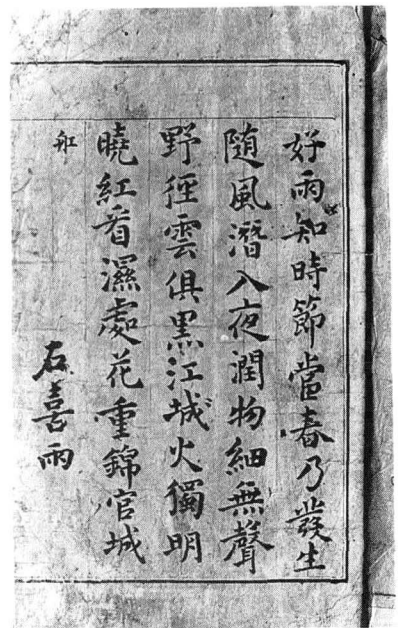 好雨知時節當春乃發生
随風潛入夜潤物細無聲
野徑雲俱黑江城火獨明
曉紅看濕處花重錦官城
舡
右喜雨